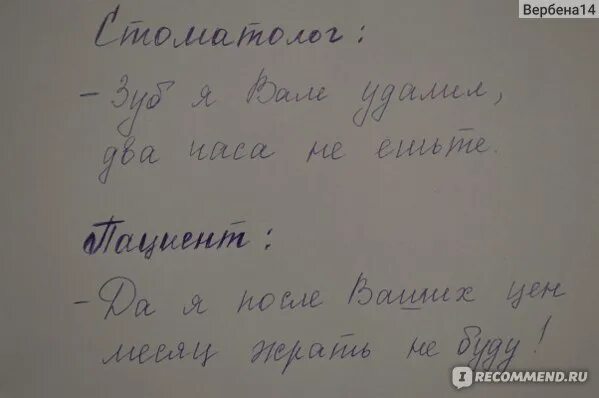 Вербена14
Стоматолог:
- Зуб я Вам удалил,
два часа не ешьте.
Пациент:
- Да я после Ваших цен
месяц жрать не буду!
IRECOMMEND.RU